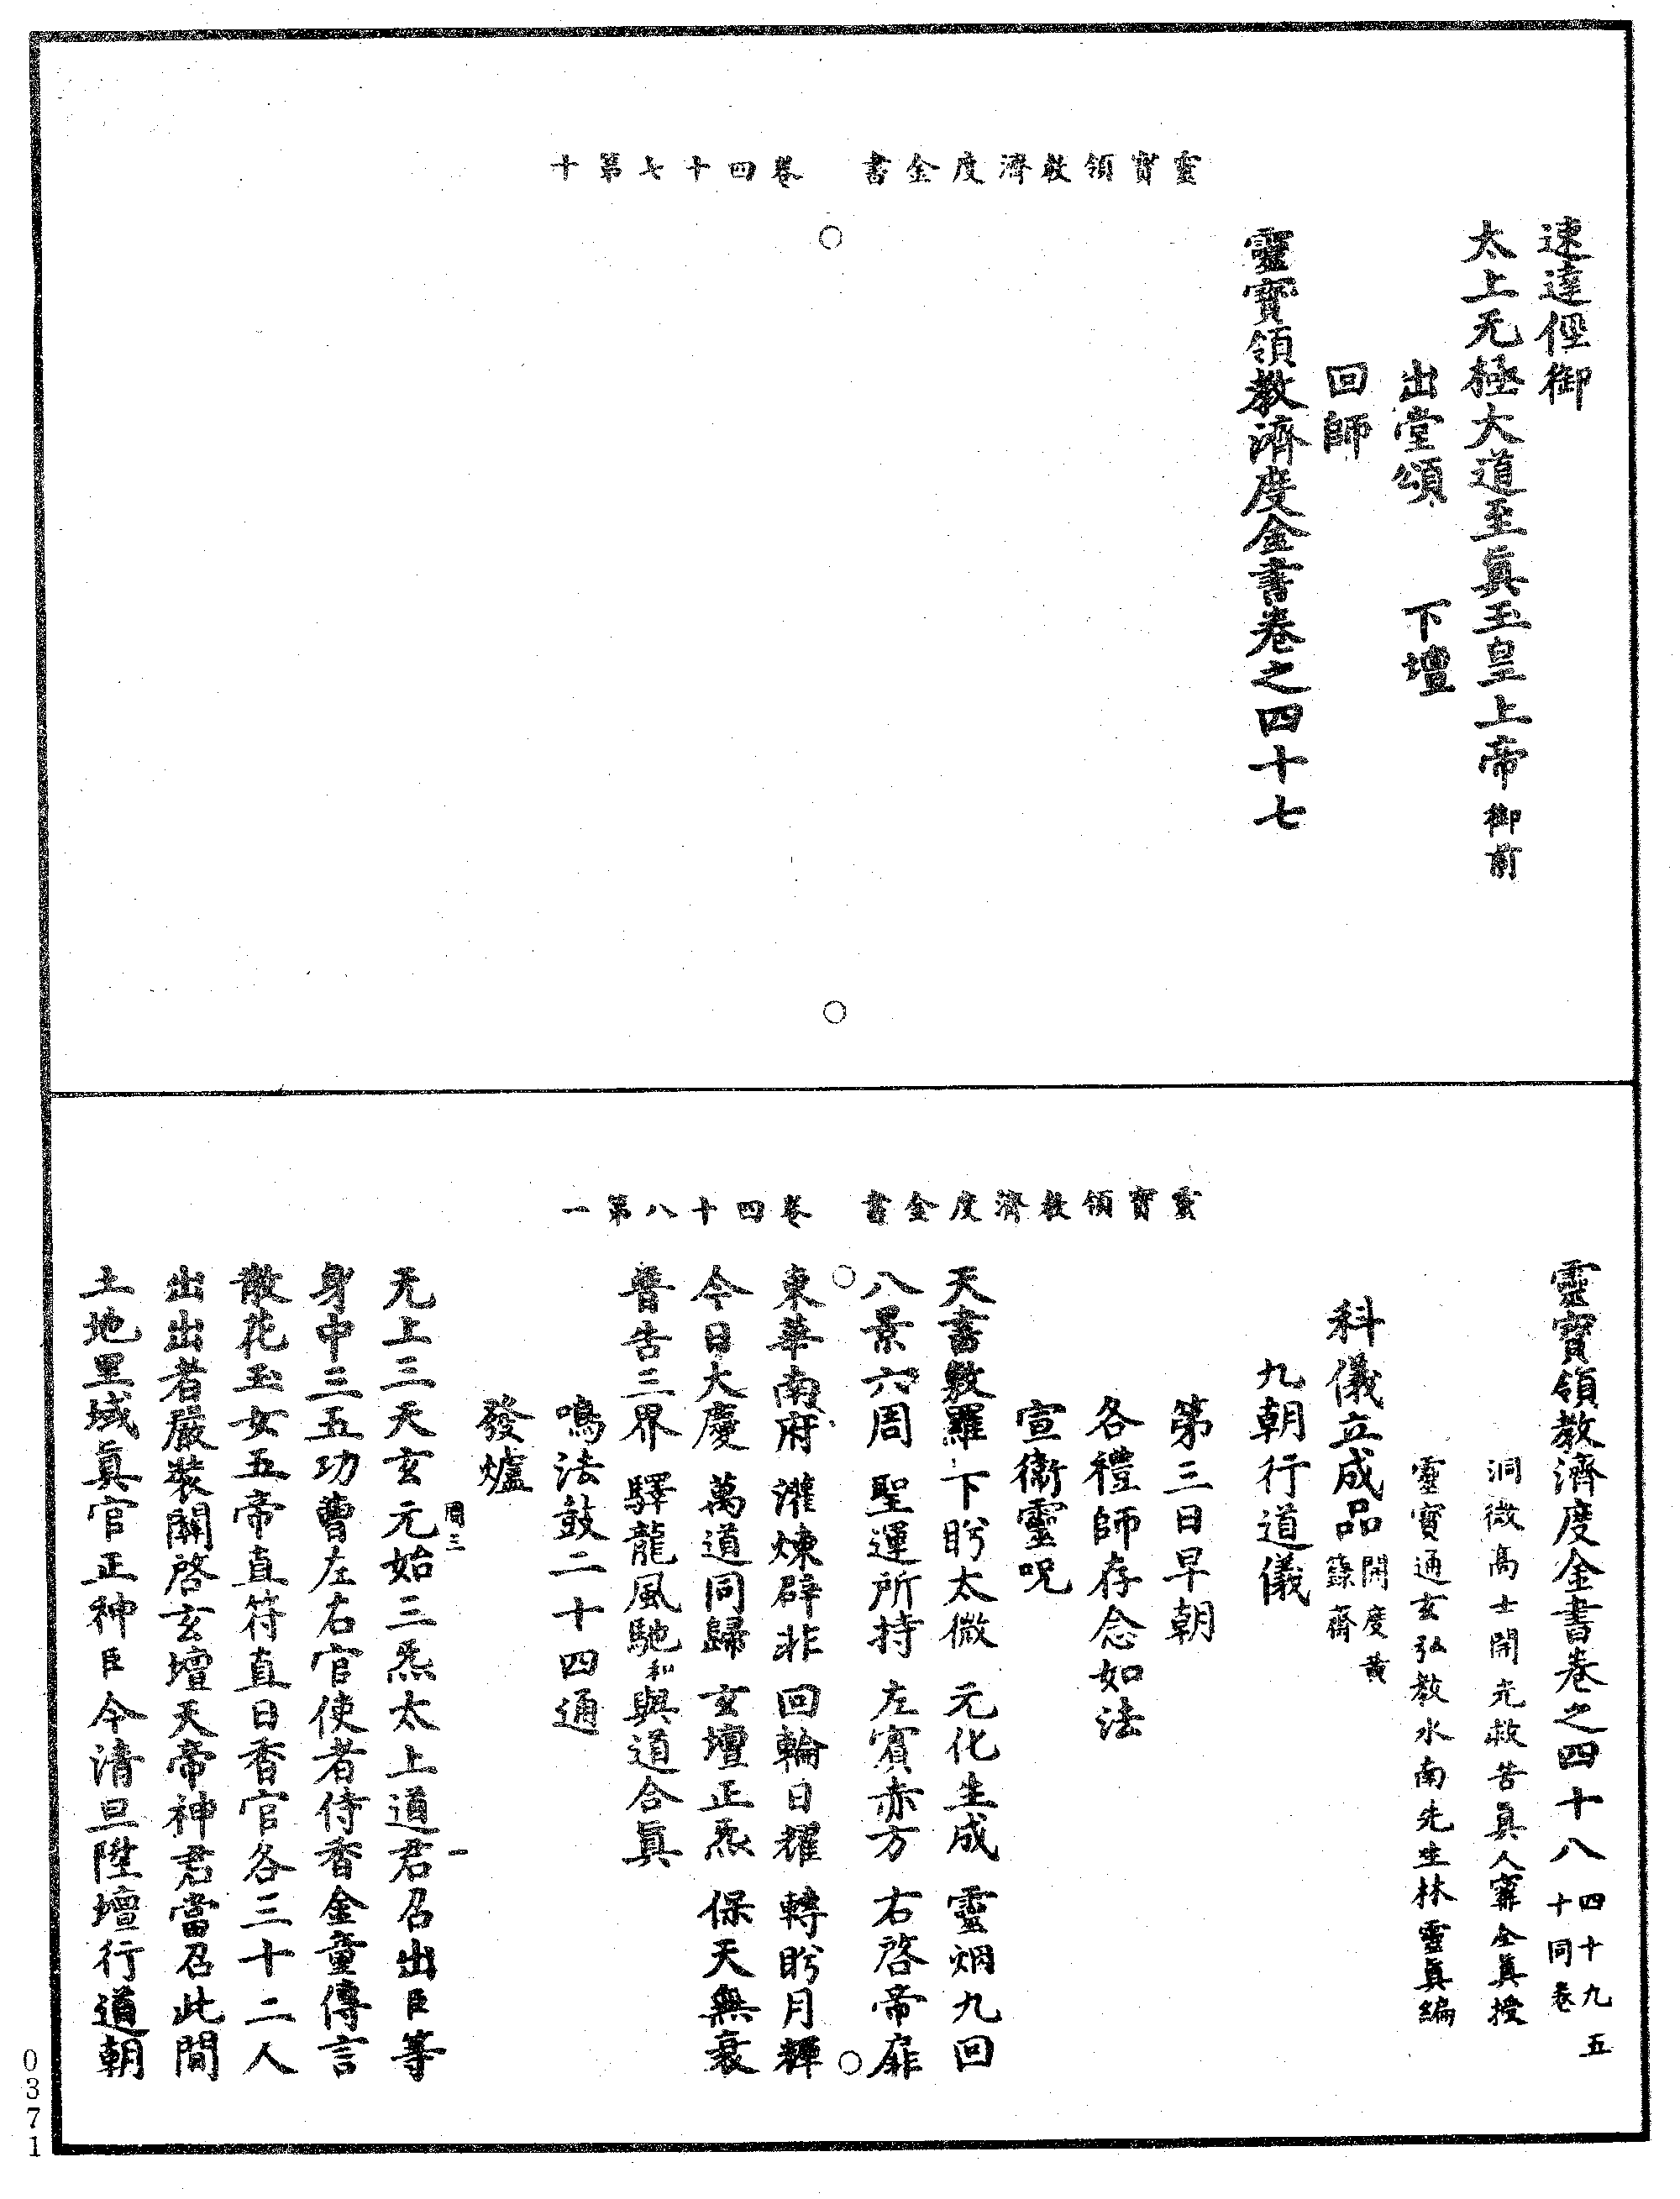 靈寶領教濟度金書　卷四十七第十
速達徑御
太上无極大道至眞玉皇上帝御前
出堂頌　下壇
回師
靈寶領教濟度金書卷之四十七
靈寶領教濟度金書　卷四十八第一
靈寶領教濟度金書卷之四十八四十九五十同卷
洞微高士開光救苦眞人寗全眞授
靈寶通玄弘教水南先生林靈眞編
科儀立成品開度黃籙齋
九朝行道儀
第三日早朝
各禮師存念如法
宣衞靈呪
天書敷羅　下眄太微　元化生成　靈烟九回
八景六周　聖運所持　左賓赤方　右啓帝扉
東華南府　灌煉辟非　回輪日耀　轉眄月輝
今日大慶　萬道同歸　玄壇正炁　保天無衰
普告三界　驛龍風馳和與道合眞
鳴法鼓二十四通
發爐
无上三天玄元始三炁太上道君召出臣等
周三　一
身中三五功曹左右官使者侍香金童傳言
散花玉女五帝直符直日香官各三十二人
出出者嚴裝關啓玄壇天帝神君當召此間
土地里域眞官正神臣今清旦陞壇行道朝
0371